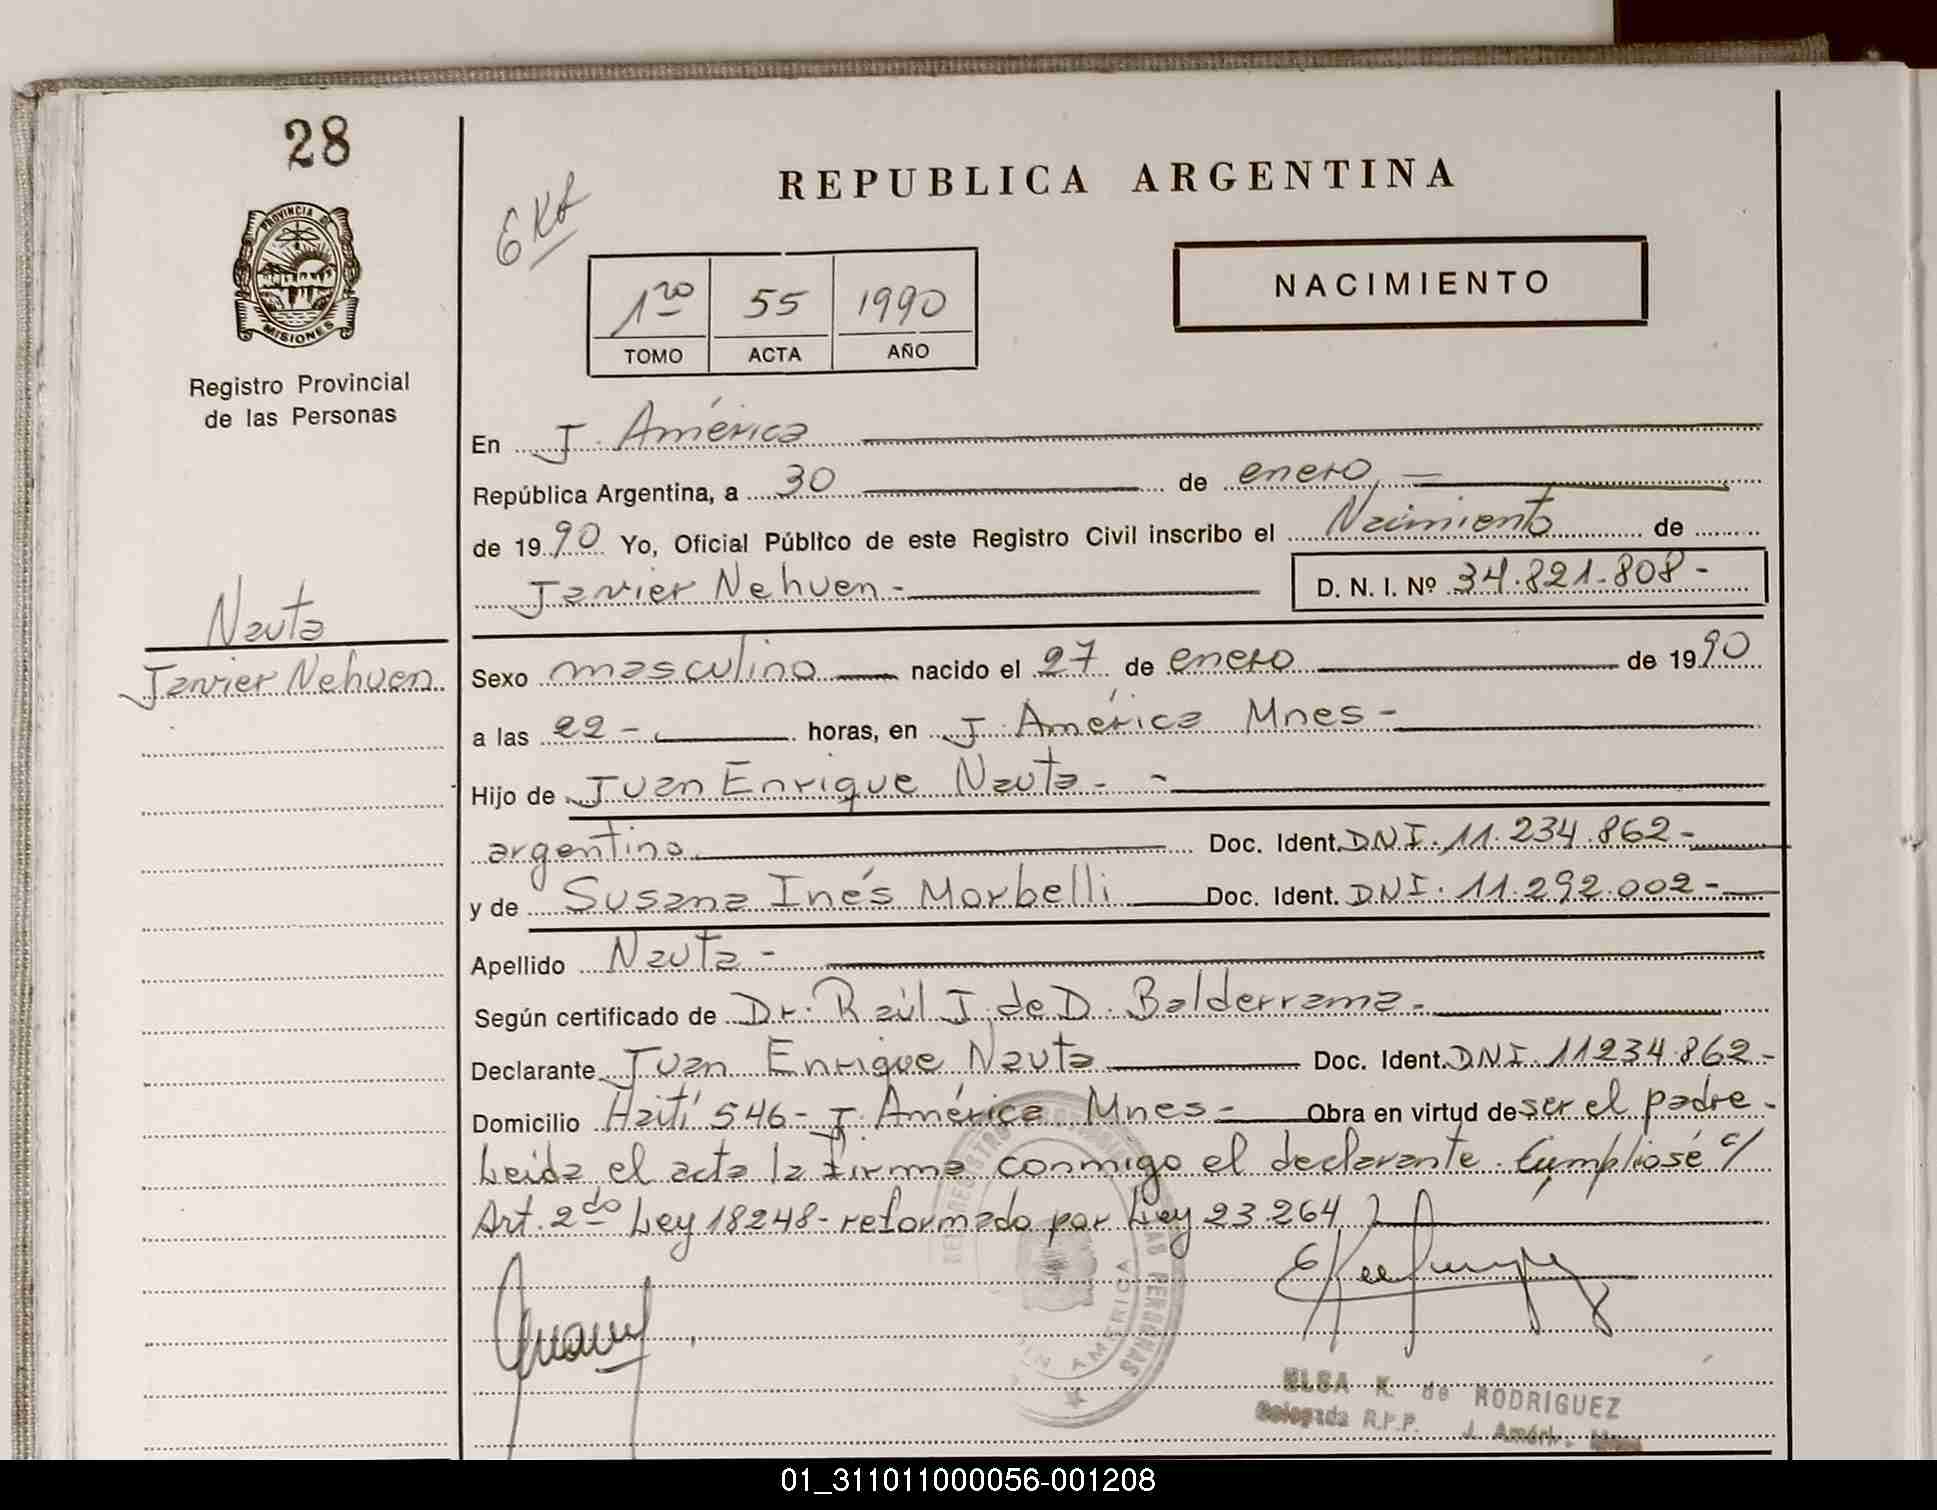 28
REPUBLICA ARGENTINA
PROVINCIA DE
MISIONES
Registro Provincial
de las Personas
1ro 55 1990
TOMO ACTA AÑO
NACIMIENTO
En J. América
República Argentina, a 30 de enero
de 1990 Yo, Oficial Público de este Registro Civil inscribo el Nacimiento de
Javier Nehuen - D. N. I. Nº 34.821.808 -
Nauta
Javier Nehuen
Sexo masculino nacido el 27 de enero de 1990
a las 22 - horas, en J. América Mnes -
Hijo de Juan Enrique Nauta - -
argentino Doc. Ident. DNI. 11.234.862 -
y de Susana Inés Morbelli Doc. Ident. DNI. 11.292.002 -
Apellido Nauta -
Según certificado de Dr. Raúl J. de D. Balderrama -
Declarante Juan Enrique Nauta Doc. Ident. DNI. 11234.862 -
Domicilio Haití 546 - J. América Mnes - Obra en virtud de ser el padre -
Leida el acta la firma conmigo el declarante. Cumpliosé c/
Art. 2do Ley 18248 - reformado por Ley 23.264
ELSA K. de RODRIGUEZ
Delegada R.P.P. J. Améric.
01_311011000056-001208